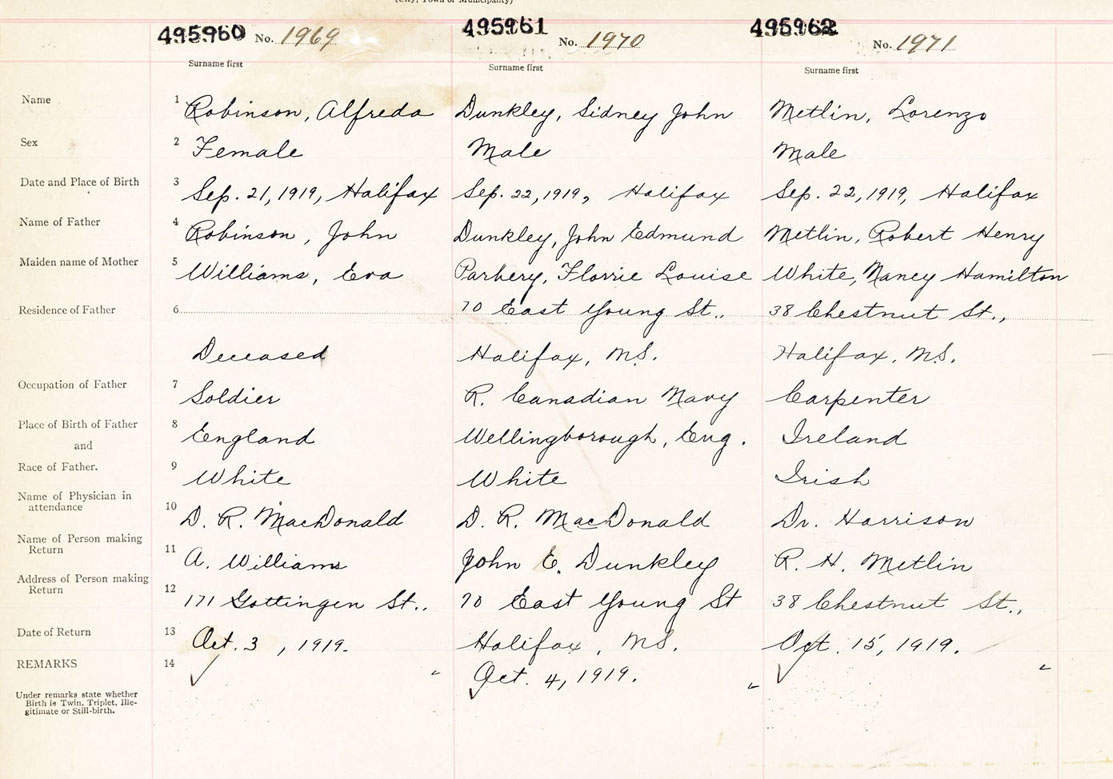 (City, Town or Municipality)
495960 No. 1969 495961 No. 1970 495962 No. 1971
Surname first Surname first Surname first
Name 1 Robinson, Alfreda Dunkley, Sidney John Metlin, Lorenzo
Sex 2 Female Male Male
Date and Place of Birth 3 Sep. 21, 1919, Halifax Sep. 22, 1919, Halifax Sep. 22, 1919, Halifax
Name of Father 4 Robinson, John Dunkley, John Edmund Metlin, Robert Henry
Maiden name of Mother 5 Williams, Eva Parbery, Florrie Louise White, Nancy Hamilton
Residence of Father 6 70 East Young St., 38 Chestnut St.,
Deceased Halifax, N.S. Halifax, N.S.
Occupation of Father 7 Soldier R. Canadian Navy Carpenter
Place of Birth of Father 8 England Wellingborough, Eng. Ireland
and
Race of Father. 9 White White Irish
Name of Physician in
attendance 10 D. R. MacDonald D. R. MacDonald Dr. Harrison
Name of Person making
Return 11 A. Williams John E. Dunkley R. H. Metlin
Address of Person making
Return 12 171 Gottingen St.. 70 East Young St 38 Chestnut St.,
Date of Return 13 Oct. 3, 1919. Halifax, N.S. Oct. 15, 1919.
REMARKS 14 Oct. 4, 1919.
Under remarks state whether
Birth is Twin, Triplet, Ille-
gitimate or Still-birth.